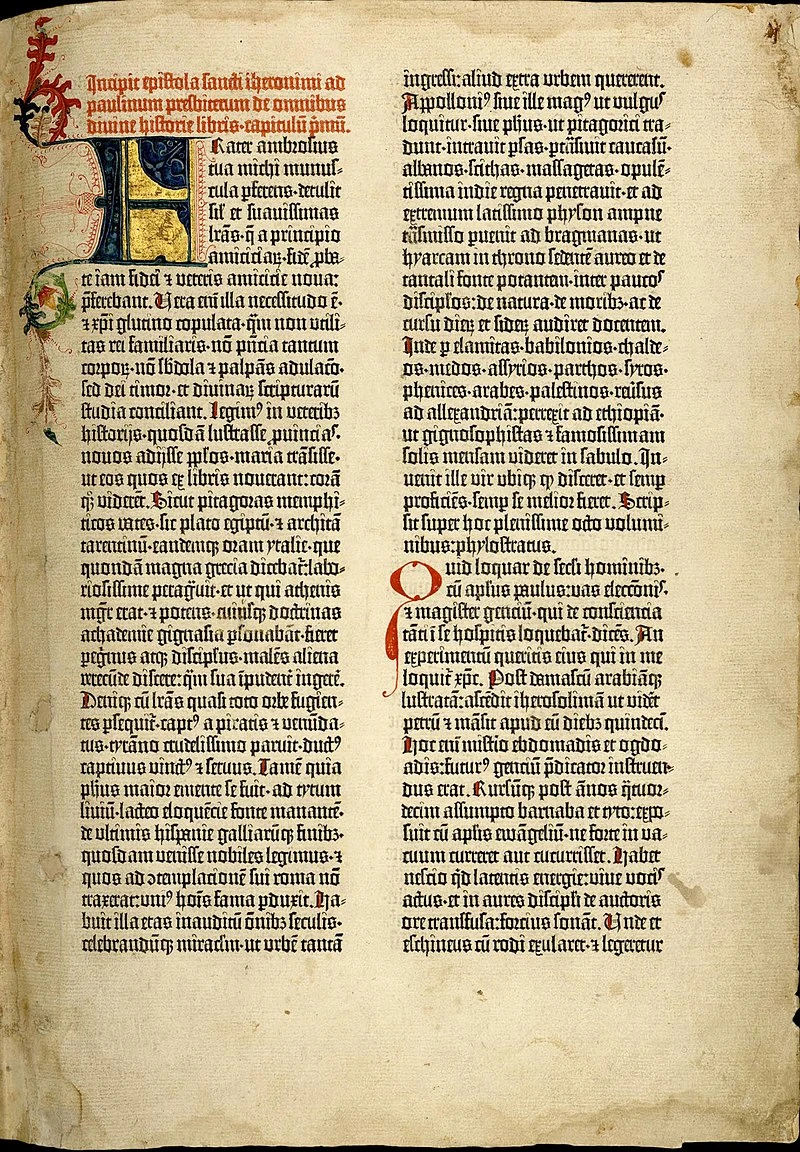 Incipit epistola sancti iheronimi ad
paulinum presbiterum de omnibus
divine historie libris· capitulū p̄mū.
Frater ambrosius
tua michi munus-
cula ꝑferens· detulit
sil̄ et suavissimas
lr̄as· q̄ a principio
amiciciaꝝ· fidē ꝓba-
te iam fidei ⁊ veteris amicicie nova:
p̄ferebant. Vera eni̅ illa necessitudo ē·
⁊ xp̄i glutino copulata· qm̄ non utili-
tas rei familiaris· nō pn̄cia tantum
corporꝝ· nō sb̄dola ⁊ palpās adulaco̅·
sed dei timor· et divinaꝝ scripturarū
studia conciliant. Legimꝰ in veteribꝫ
historijs· quosdā lustrasse ꝓuincias·
novos adijsse ppl̄os· maria trāsisse·
ut eos quos ex libris noverant: corā
qꝫ viderēt. Sicut pitagoras memphi-
ticos vates· sic plato egiptū· ⁊ architā
tarentinū· eandemqꝫ oram ytalie· que
quondā magna grecia dicebat̄: labo-
riosissime peragͣuit· et ut qui athenis
mgr̄ erat· ⁊ potens· cuiusqꝫ doctrinas
achademie gignasia ꝑsonabāt· fieret
peg̓nus atqꝫ discipl̄us· malēs aliena
verecūde discere: qm̄ sua īpudent̄ ingerē.
Deniqꝫ cū lr̄as quasi toto orbe fugien-
tes ꝑsequit̄· captꝰ a piratis ⁊ venūda-
tus· tyrāno crudelissimo paruit· ductꝰ
captiuus vinctꝰ ⁊ seruus. Tamē quia
ph̄us maior emente se fuit· ad tytum
liviū· lacteo eloquēcie fonte manantē·
de ultimis hispanie galliarūqꝫ finibꝫ·
quosdam venisse nobiles legimus· ⁊
quos ad ꝯtemplacionē sui roma nō
traxerat: uniꝰ hoīs fama ꝑduxit. Ha-
buit illa etas inauditū oṁibꝫ seculis·
celebrandūqꝫ miracl̄m· ut urbē tantā
ingressi: aliud extra urbem quererent.
Appolloniꝰ siue ille magꝰ ut vulgus
loquitur· siue ph̄us· ut pitagorici tra-
dunt· intrauit ꝑsas· ꝑtrāsiuit caucasū·
albanos· scithas· massagetas· opulē-
tissima indie regna penetrauit· et ad
extremum latissimo physon ampne
trāsmisso ꝑuenit ad bragmanas· ut
hyarcam in throno sedentē aureo et de
tantali fonte potantem· inter paucos
discipl̄os: de natura· de moribꝫ· ac de
cursu dieꝝ et sideꝝ audiret docentem.
Inde ꝑ elamitas· babilonios· chalde-
os· medos· assyrios· parthos· syros·
phenices· arabes· palestinos· reuersus
ad allexandriā: perrexit ad ethiopiā·
ut gignosophistas ⁊ famosissimam
solis mensam videret in sabulo. In-
uenit ille vir ubiqꝫ qꝫ disceret· et semꝑ
proficiēs· semꝑ se melior fieret. Scrip-
sit super hoc plenissime octo volumi-
nibus: phylostratus.
Quid loquar de seculi hominibꝫ·
cū apl̄us paulus: vas eleccōnis·
⁊ magister genciū· qui de consciencia
tāti ī se hospitis loquebat̄· dicēs. An
experimentū queritis eius qui in me
loquit̄ xp̄c. Post damascū arabiāqꝫ
lustratā: ascēdit iherosolimā ut vidēt
petrū ⁊ māsit apud eū diebꝫ quindeci̅.
Hoc eni̅ mist̓io ebdomadis et ogdo-
adis: futurꝰ genciū p̄dicator instruen-
dus erat. Rursūqꝫ post ānos q̄tuor-
decim assumpto barnaba et tyto: expo-
suit cū apl̄is ewāgeliū· ne forte in va-
cuum curreret aut cucurrisset. Habet
nescio qd̄ latentis energie: viue vocis
actus· et in aures discipl̄i de auctoris
ore transfusa: forcius sonāt. Unde et
eschineus cū rodi exularet· ⁊ legeretur